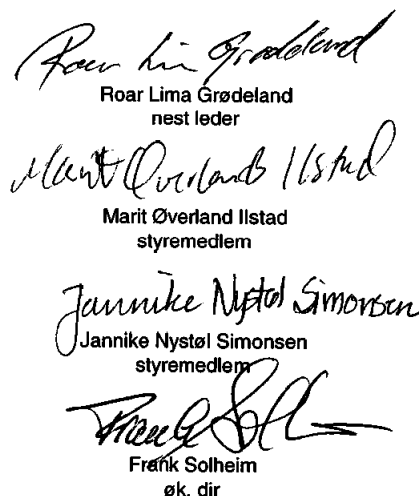 Roar Lima Grødeland
Roar Lima Grødeland
nest leder
Marit Øverland Ilstad
Marit Øverland Ilstad
styremedlem
Jannike Nystøl Simonsen
Jannike Nystøl Simonsen
styremedlem
Frank Solheim
øk. dir